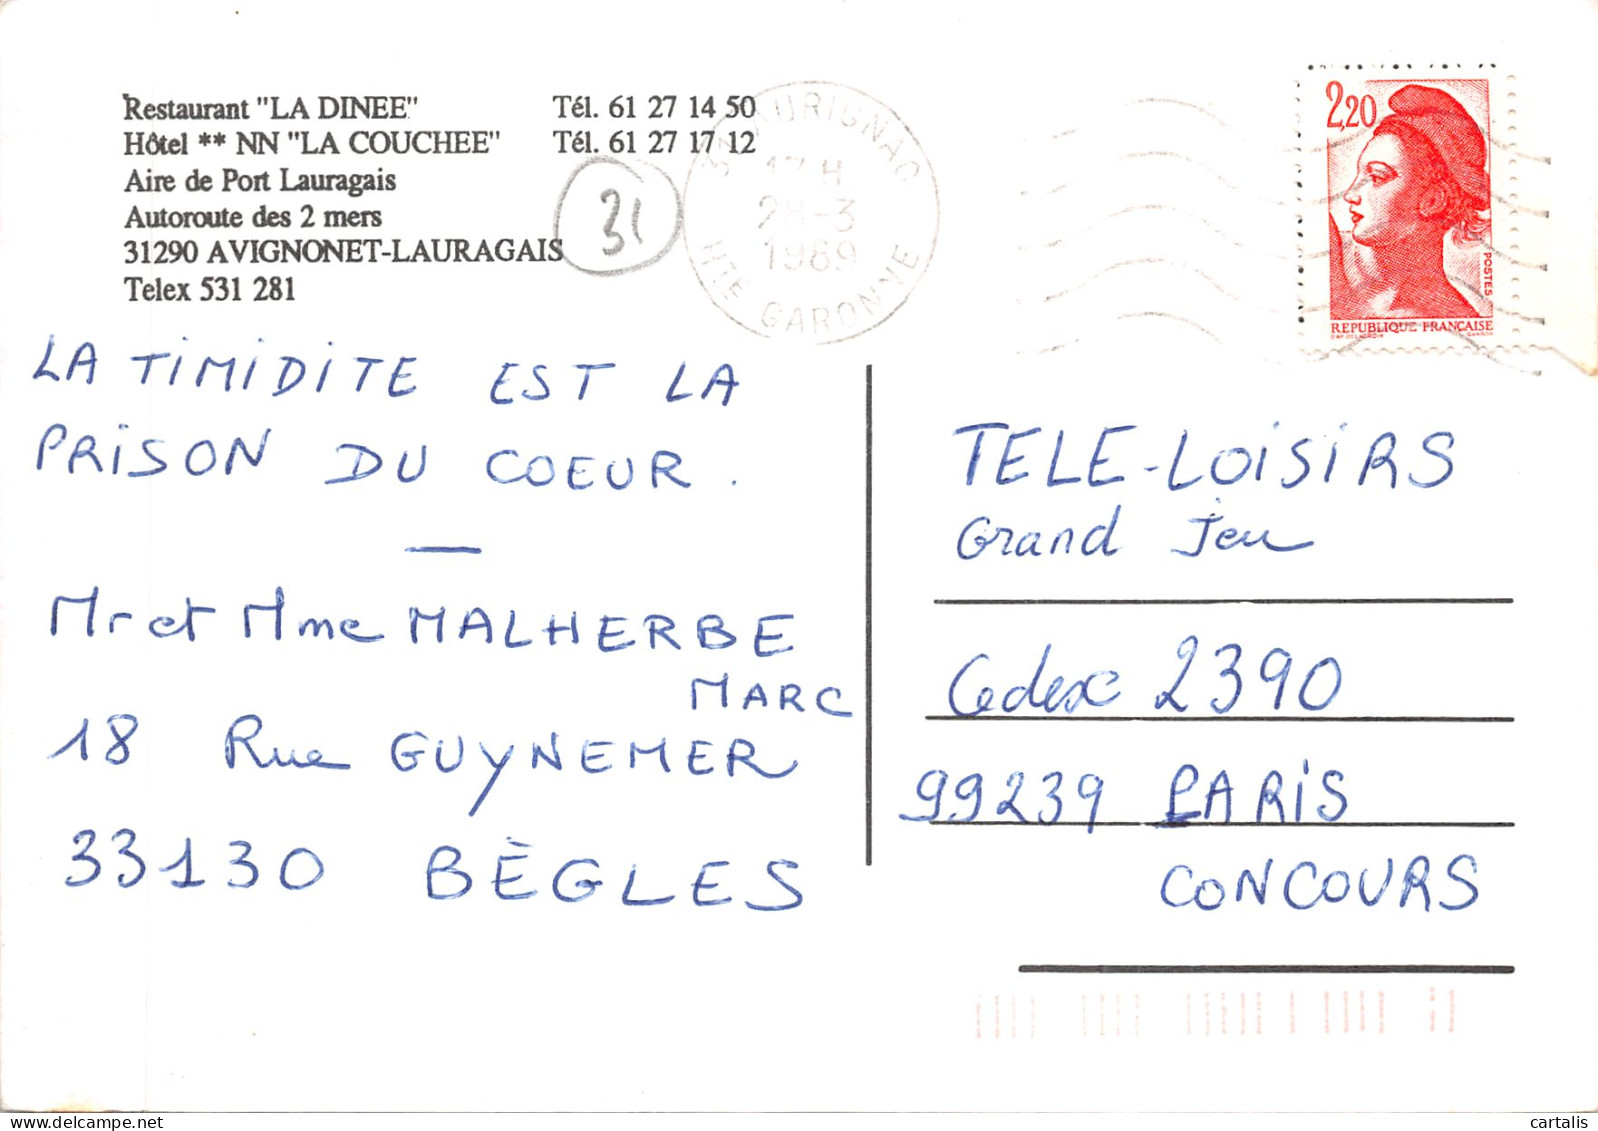 Restaurant "LA DINEE" Tél. 61 27 14 50
Hôtel ** NN "LA COUCHEE" Tél. 61 27 17 12
Aire de Port Lauragais
Autoroute des 2 mers
31290 AVIGNONET-LAURAGAIS
Telex 531 281
31
31 AURIGNAC
17 H
28-3
1989
HTE GARONNE
2,20
POSTES
REPUBLIQUE FRANÇAISE
LA TIMIDITE EST LA
PRISON DU COEUR.
Mr et Mme MALHERBE
MARC
18 Rue GUYNEMER
33130 BÈGLES
TELE-LOISIRS
Grand Jeu
Cedex 2390
99239 PARIS
CONCOURS
cartalis